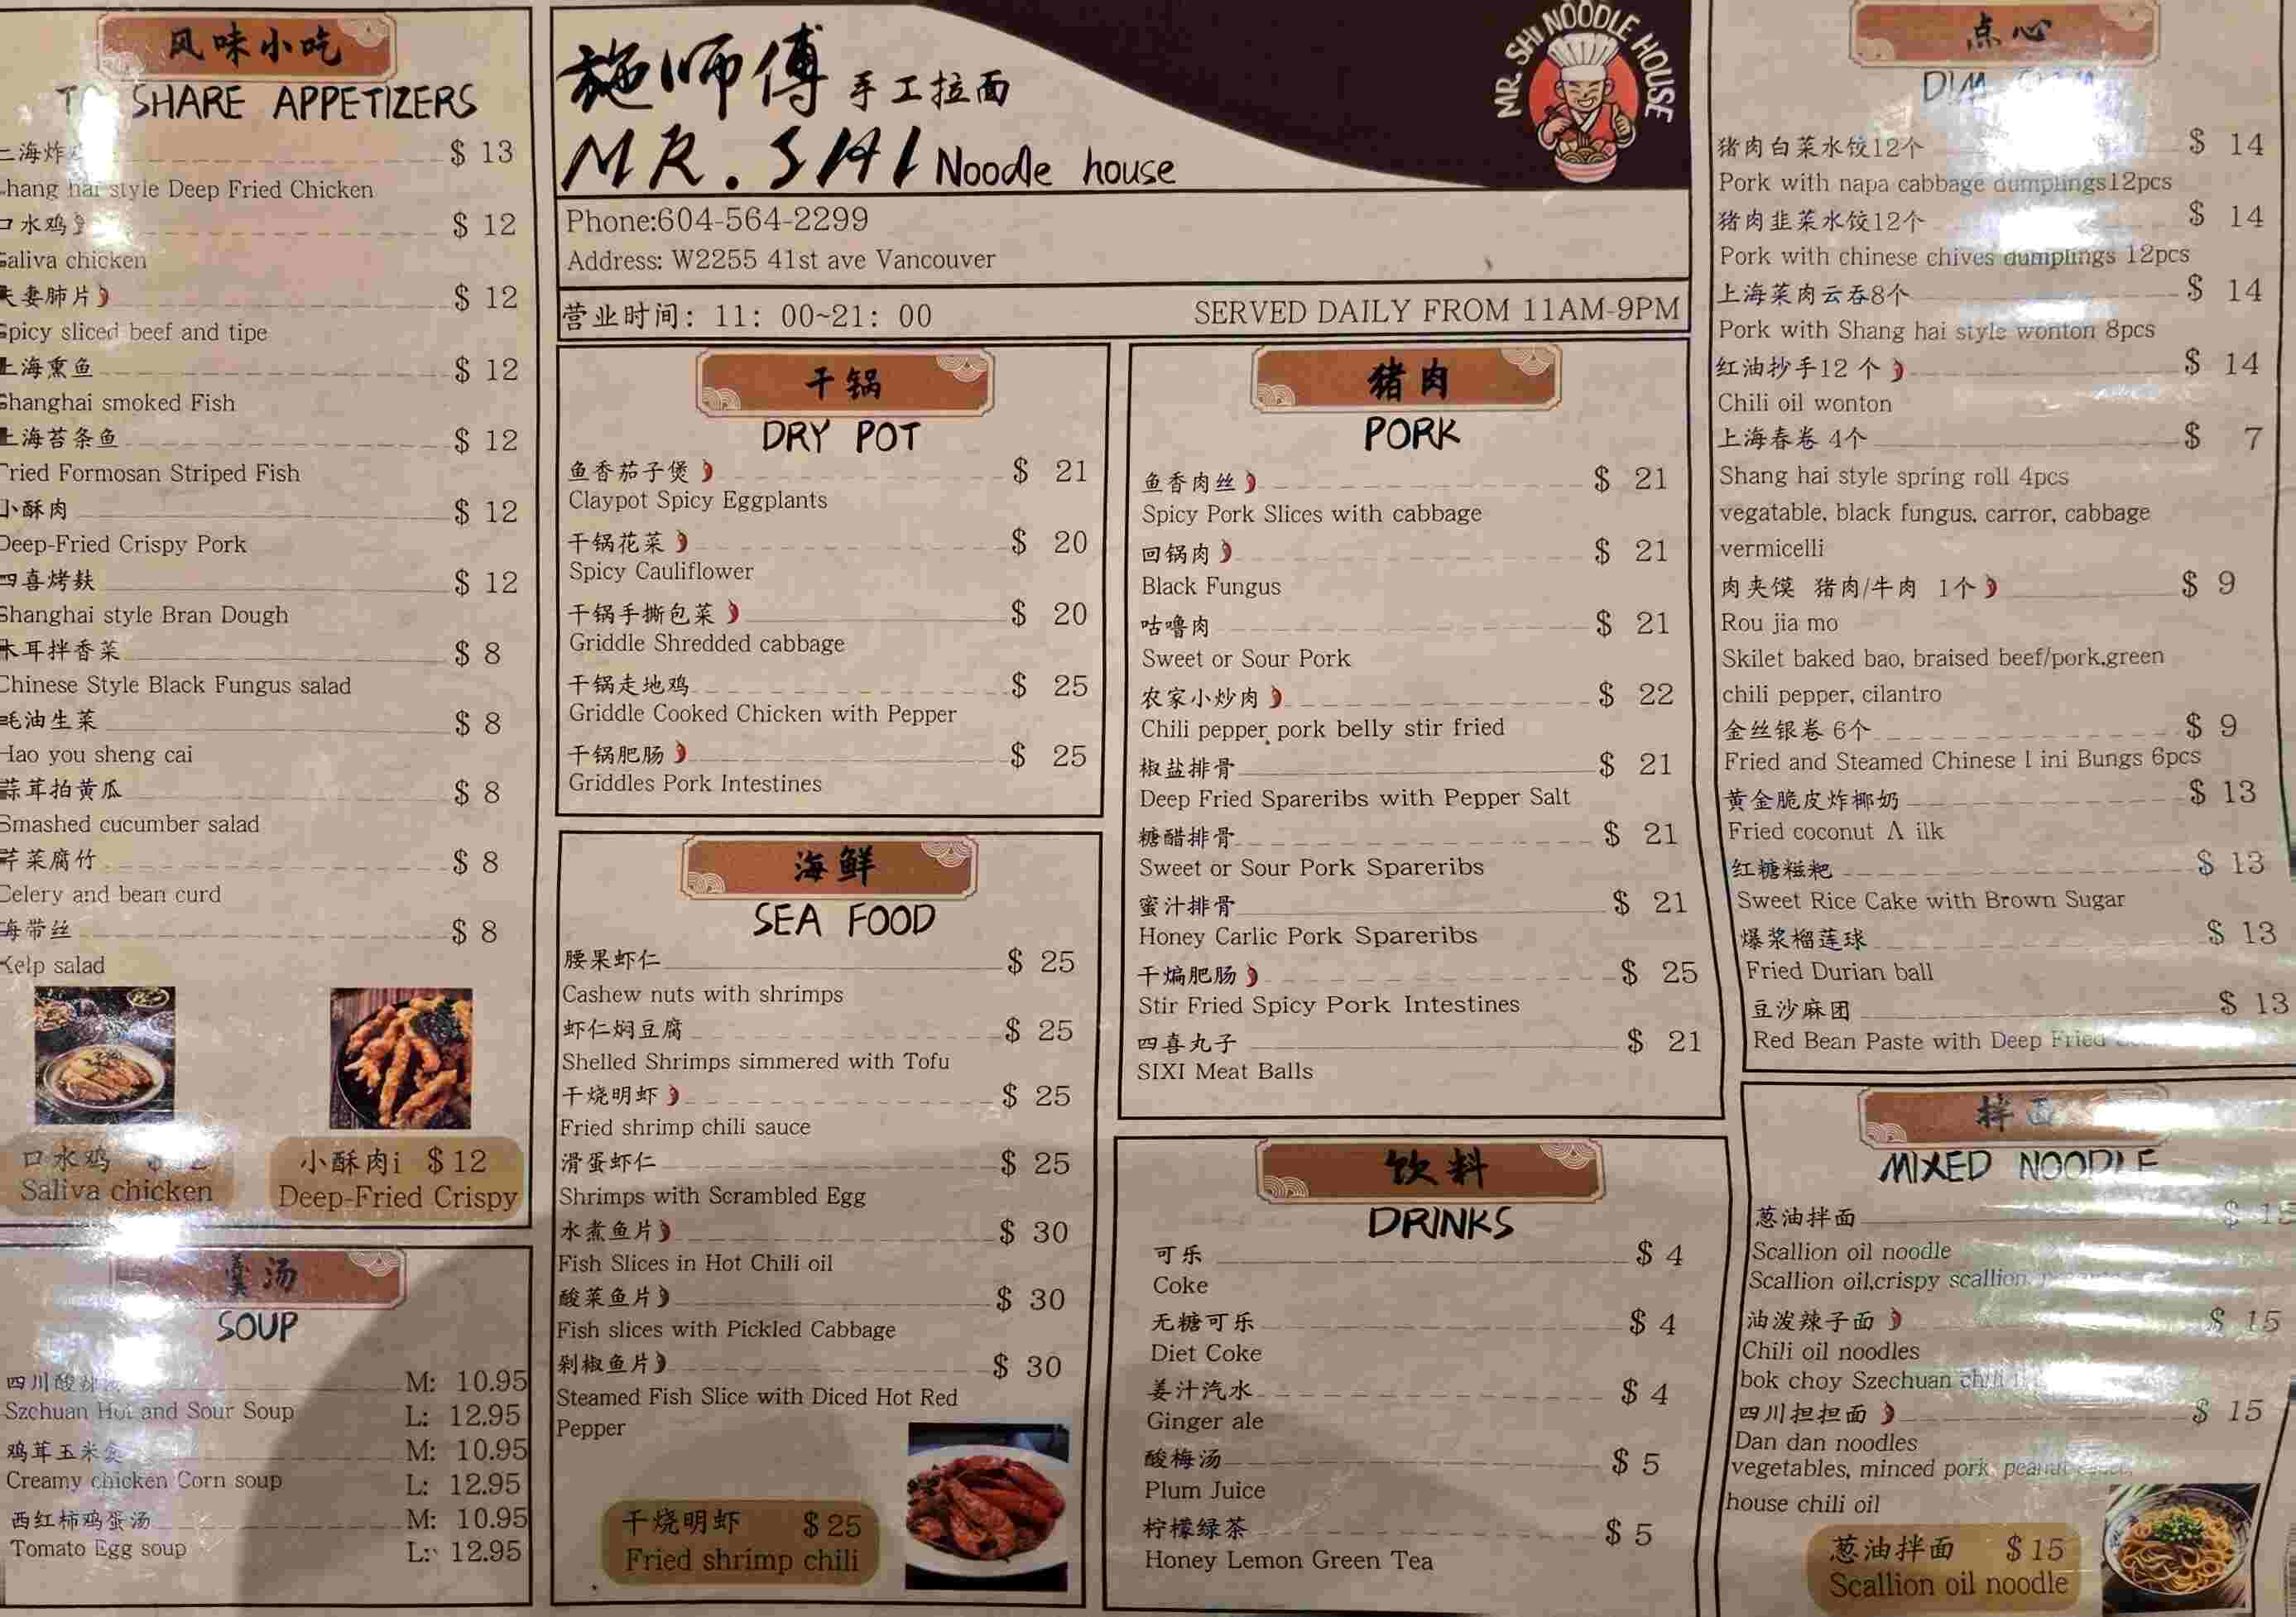 风味小吃
SHARE APPETIZERS
海炸 $ 13
hang hai style Deep Fried Chicken
口水鸡 $ 12
aliva chicken
夫妻肺片 $ 12
Spicy sliced beef and tipe
上海熏鱼 $ 12
Shanghai smoked Fish
上海苔条鱼 $ 12
Fried Formosan Striped Fish
小酥肉 $ 12
Deep-Fried Crispy Pork
四喜烤麸 $ 12
Shanghai style Bran Dough
木耳拌香菜 $ 8
Chinese Style Black Fungus salad
蚝油生菜 $ 8
Hao you sheng cai
蒜茸拍黄瓜 $ 8
Smashed cucumber salad
芹菜腐竹 $ 8
Celery and bean curd
海带丝 $ 8
Kelp salad
口水鸡
Saliva chicken
小酥肉i $12
Deep-Fried Crispy
羹汤
SOUP
四川酸辣 M: 10.95
Szchuan Hot and Sour Soup L: 12.95
鸡茸玉米羹 M: 10.95
Creamy chicken Corn soup L: 12.95
西红柿鸡蛋汤 M: 10.95
Tomato Egg soup L: 12.95
施师傅 手工拉面
MR. SHI Noodle house
MR. SHI NOODLE HOUSE
Phone:604-564-2299
Address: W2255 41st ave Vancouver
营业时间: 11: 00~21: 00 SERVED DAILY FROM 11AM-9PM
干锅
DRY POT
鱼香茄子煲 $ 21
Claypot Spicy Eggplants
干锅花菜 $ 20
Spicy Cauliflower
干锅手撕包菜 $ 20
Griddle Shredded cabbage
干锅走地鸡 $ 25
Griddle Cooked Chicken with Pepper
干锅肥肠 $ 25
Griddles Pork Intestines
海鲜
SEA FOOD
腰果虾仁 $ 25
Cashew nuts with shrimps
虾仁焖豆腐 $ 25
Shelled Shrimps simmered with Tofu
干烧明虾 $ 25
Fried shrimp chili sauce
滑蛋虾仁 $ 25
Shrimps with Scrambled Egg
水煮鱼片 $ 30
Fish Slices in Hot Chili oil
酸菜鱼片 $ 30
Fish slices with Pickled Cabbage
剁椒鱼片 $ 30
Steamed Fish Slice with Diced Hot Red
Pepper
干烧明虾 $25
Fried shrimp chili
猪肉
PORK
鱼香肉丝 $ 21
Spicy Pork Slices with cabbage
回锅肉 $ 21
Black Fungus
咕噜肉 $ 21
Sweet or Sour Pork
农家小炒肉 $ 22
Chili pepper pork belly stir fried
椒盐排骨 $ 21
Deep Fried Spareribs with Pepper Salt
糖醋排骨 $ 21
Sweet or Sour Pork Spareribs
蜜汁排骨 $ 21
Honey Carlic Pork Spareribs
干煸肥肠 $ 25
Stir Fried Spicy Pork Intestines
四喜丸子 $ 21
SIXI Meat Balls
饮料
DRINKS
可乐 $ 4
Coke
无糖可乐 $ 4
Diet Coke
姜汁汽水 $ 4
Ginger ale
酸梅汤 $ 5
Plum Juice
柠檬绿茶 $ 5
Honey Lemon Green Tea
点心
DIM
猪肉白菜水饺12个 $ 14
Pork with napa cabbage dumplings12pcs
猪肉韭菜水饺12个 $ 14
Pork with chinese chives dumplings 12pcs
上海菜肉云吞8个 $ 14
Pork with Shang hai style wonton 8pcs
红油抄手12 个 $ 14
Chili oil wonton
上海春卷 4个 $ 7
Shang hai style spring roll 4pcs
vegatable, black fungus, carror, cabbage
vermicelli
肉夹馍 猪肉/牛肉 1个 $ 9
Rou jia mo
Skilet baked bao, braised beef/pork,green
chili pepper, cilantro
金丝银卷 6个 $ 9
Fried and Steamed Chinese l ini Bungs 6pcs
黄金脆皮炸椰奶 $ 13
Fried coconut ilk
红糖糍粑 $ 13
Sweet Rice Cake with Brown Sugar
爆浆榴莲球 $ 13
Fried Durian ball
豆沙麻团 $ 13
Red Bean Paste with Deep Fried
拌面
MIXED NOODLE
葱油拌面
Scallion oil noodle
Scallion oil,crispy scallion
油泼辣子面 $ 15
Chili oil noodles
bok choy Szechuan chili
四川担担面 $ 15
Dan dan noodles
vegetables, minced pork, peanut
house chili oil
葱油拌面 $15
Scallion oil noodle